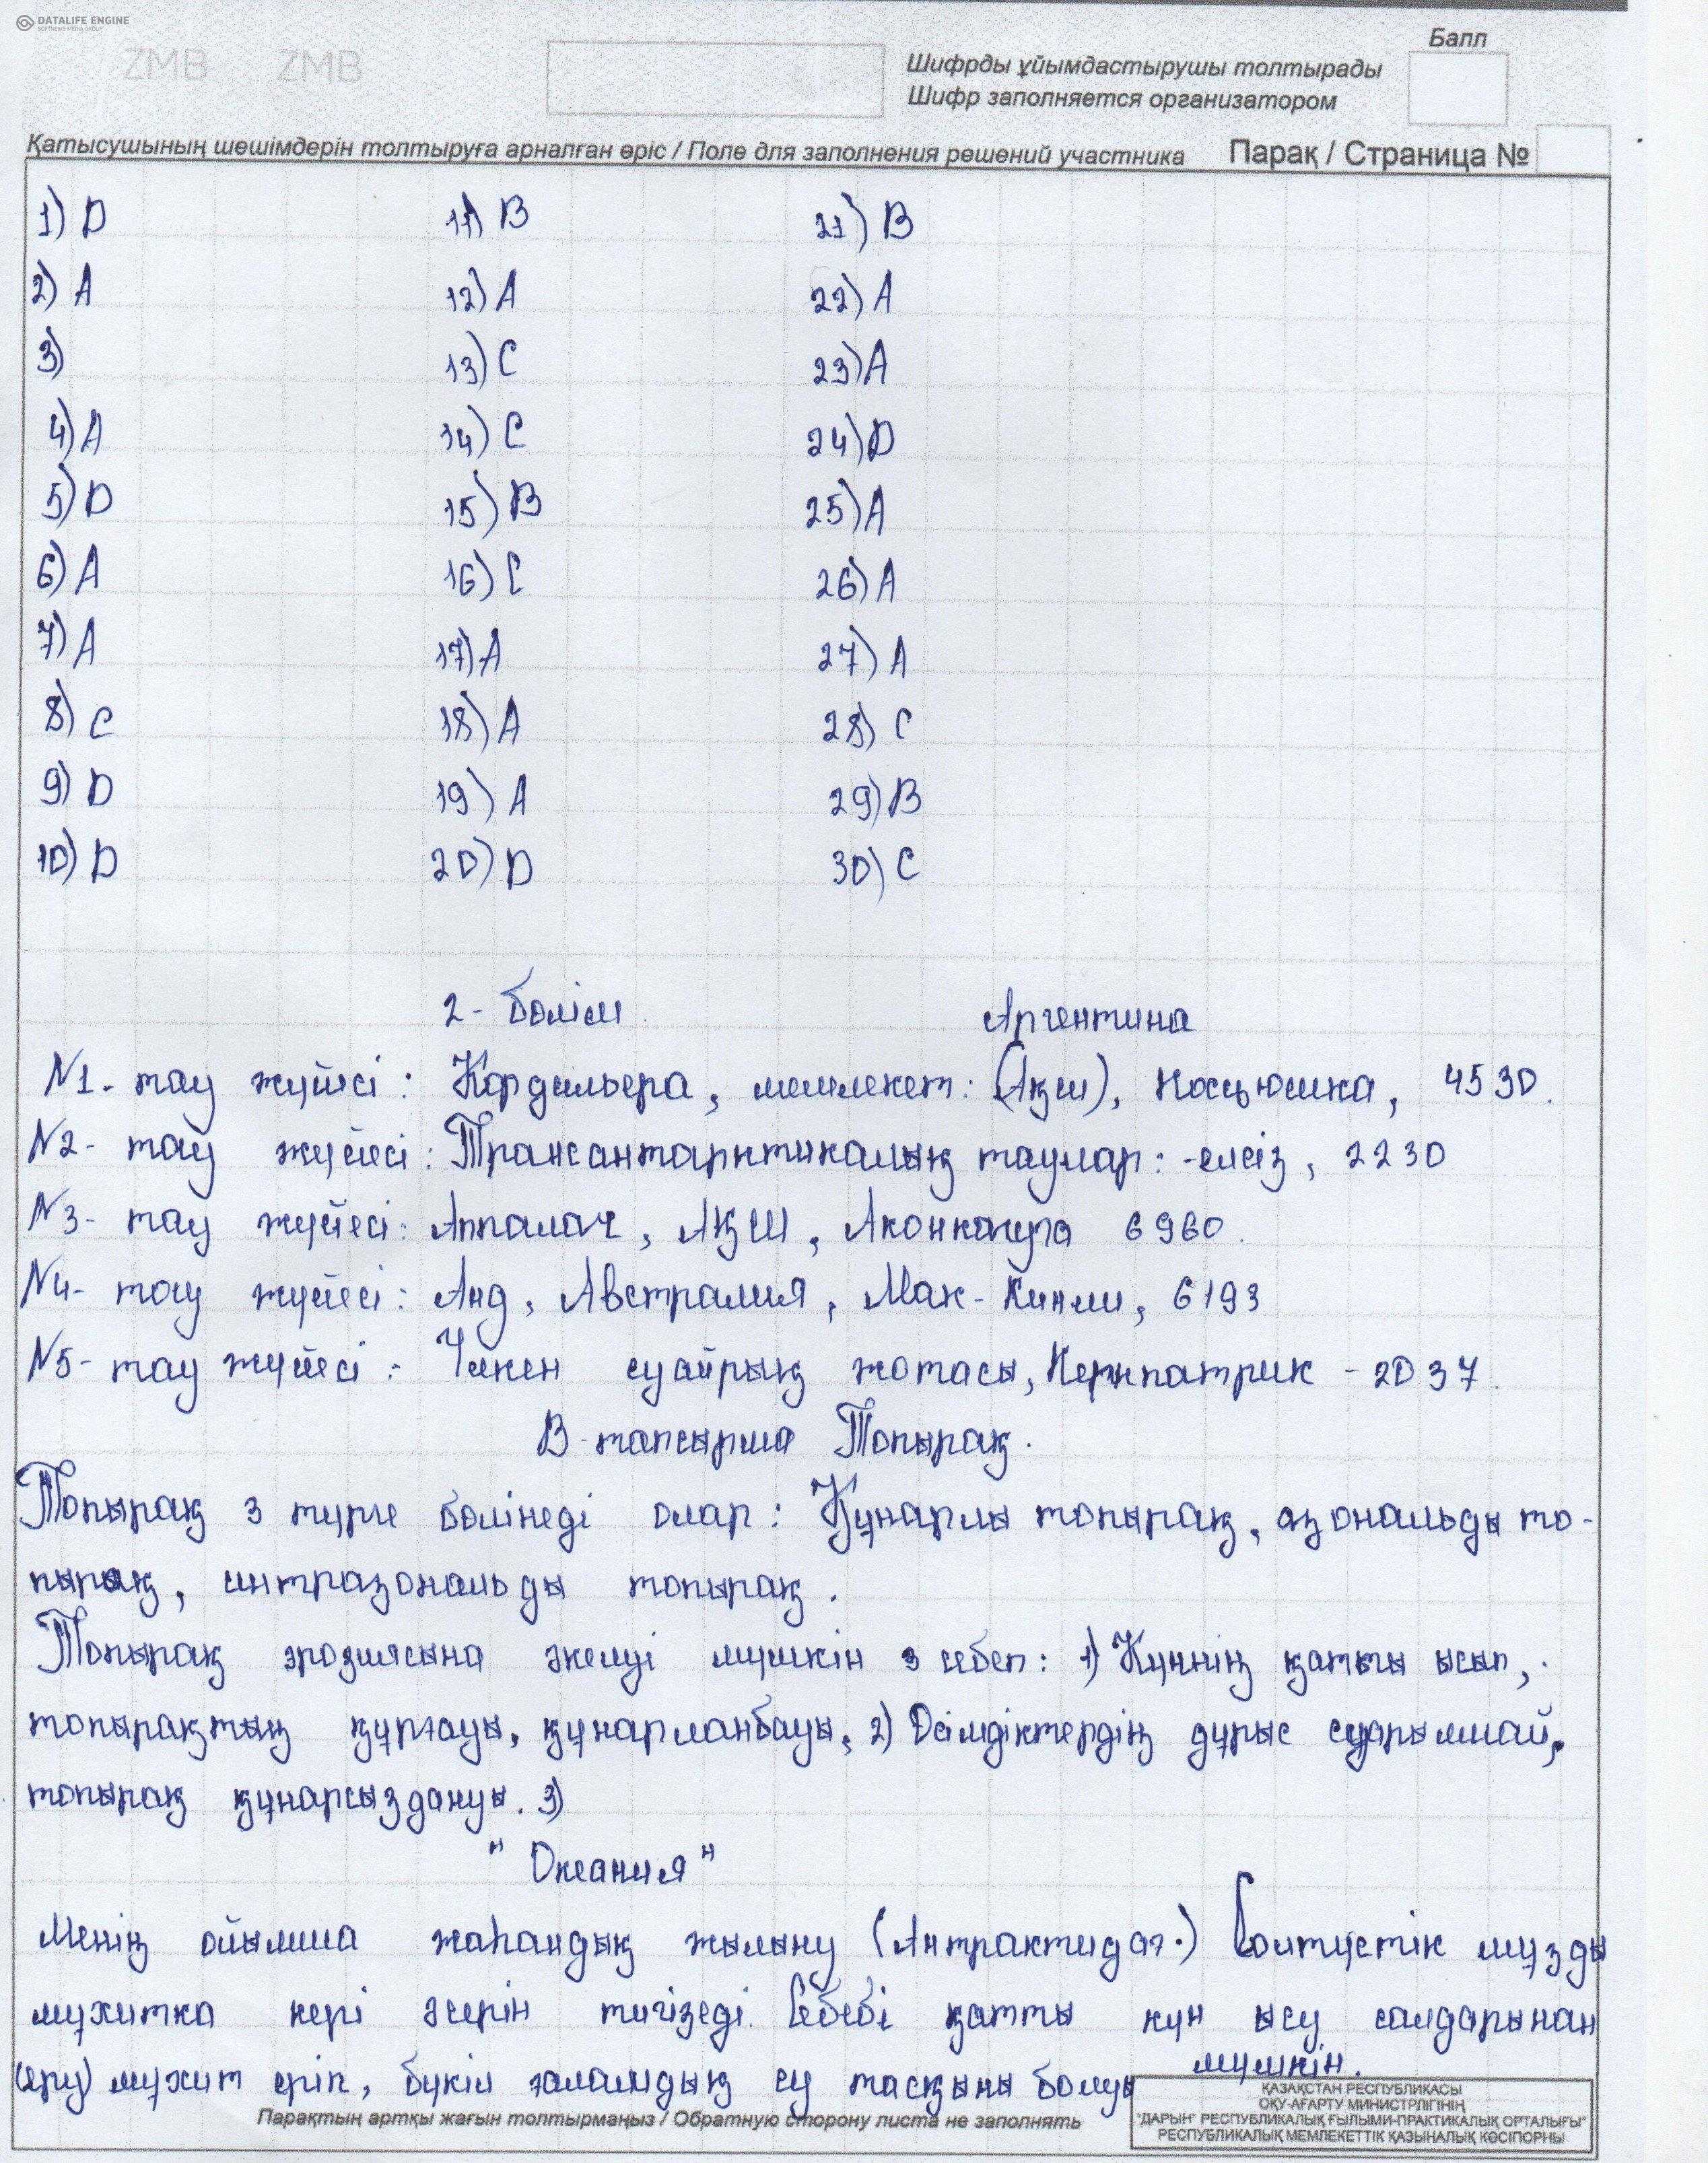 DATALIFE ENGINE
SOFTNEWS MEDIA GROUP
ZMB ZMB
Балл
Шифрды ұйымдастырушы толтырады
Шифр заполняется организатором
Қатысушының шешімдерін толтыруға арналған өріс / Поле для заполнения решений участника Парақ / Страница №
1) D 11) B 21) B
2) A 12) A 22) A
3) 13) C 23) A
4) A 14) C 24) D
5) D 15) B 25) A
6) A 16) C 26) A
7) A 17) A 27) A
8) C 18) A 28) C
9) D 19) A 29) B
10) D 20) D 30) C
2- бөлім Аргентина
N1- тау жүйесі: Кордильера, мемлекет: (Ақш), Косцюшка, 4530.
N2- тау жүйесі: Трансантарктикалық таулар: -елсіз, 2230
N3- тау жүйесі: Аппалач, АҚШ, Аконкагуа 6960.
N4- тау жүйесі: Анд, Австралия, Мак-Кинли, 6193
N5- тау жүйесі: Үлкен суайрық жотасы, Керкпатрик - 2037.
В-тапсырма Топырақ.
Топырақ 3 түрге бөлінеді олар: Құнарлы топырақ, азональды то-
пырақ, интразональды топырақ.
Топырақ эрозиясына әкелуі мүмкін 3 себеп: 1) Күннің қатты ысып,
топырақтың құрғауы, құнарланбауы, 2) Өсімдіктердің дұрыс суарылмай,
топырақ құнарсыздануы. 3)
"Океания"
Менің ойымша жаһандық жылыну (Антрактидаға.) Солтүстік мұзды
мұхитка кері әсерін тигізеді. Себебі қатты күн ысу салдарынан
(еру) мұхит еріп, бүкіл ғаламдық су тасқыны болуы мүмкін.
Парақтың артқы жағын толтырмаңыз / Обратную сторону листа не заполнять
ҚАЗАҚСТАН РЕСПУБЛИКАСЫ
ОҚУ-АҒАРТУ МИНИСТРЛІГІНІҢ
"ДАРЫН" РЕСПУБЛИКАЛЫҚ ҒЫЛЫМИ-ПРАКТИКАЛЫҚ ОРТАЛЫҒЫ"
РЕСПУБЛИКАЛЫҚ МЕМЛЕКЕТТІК ҚАЗЫНАЛЫҚ КӘСІПОРНЫ